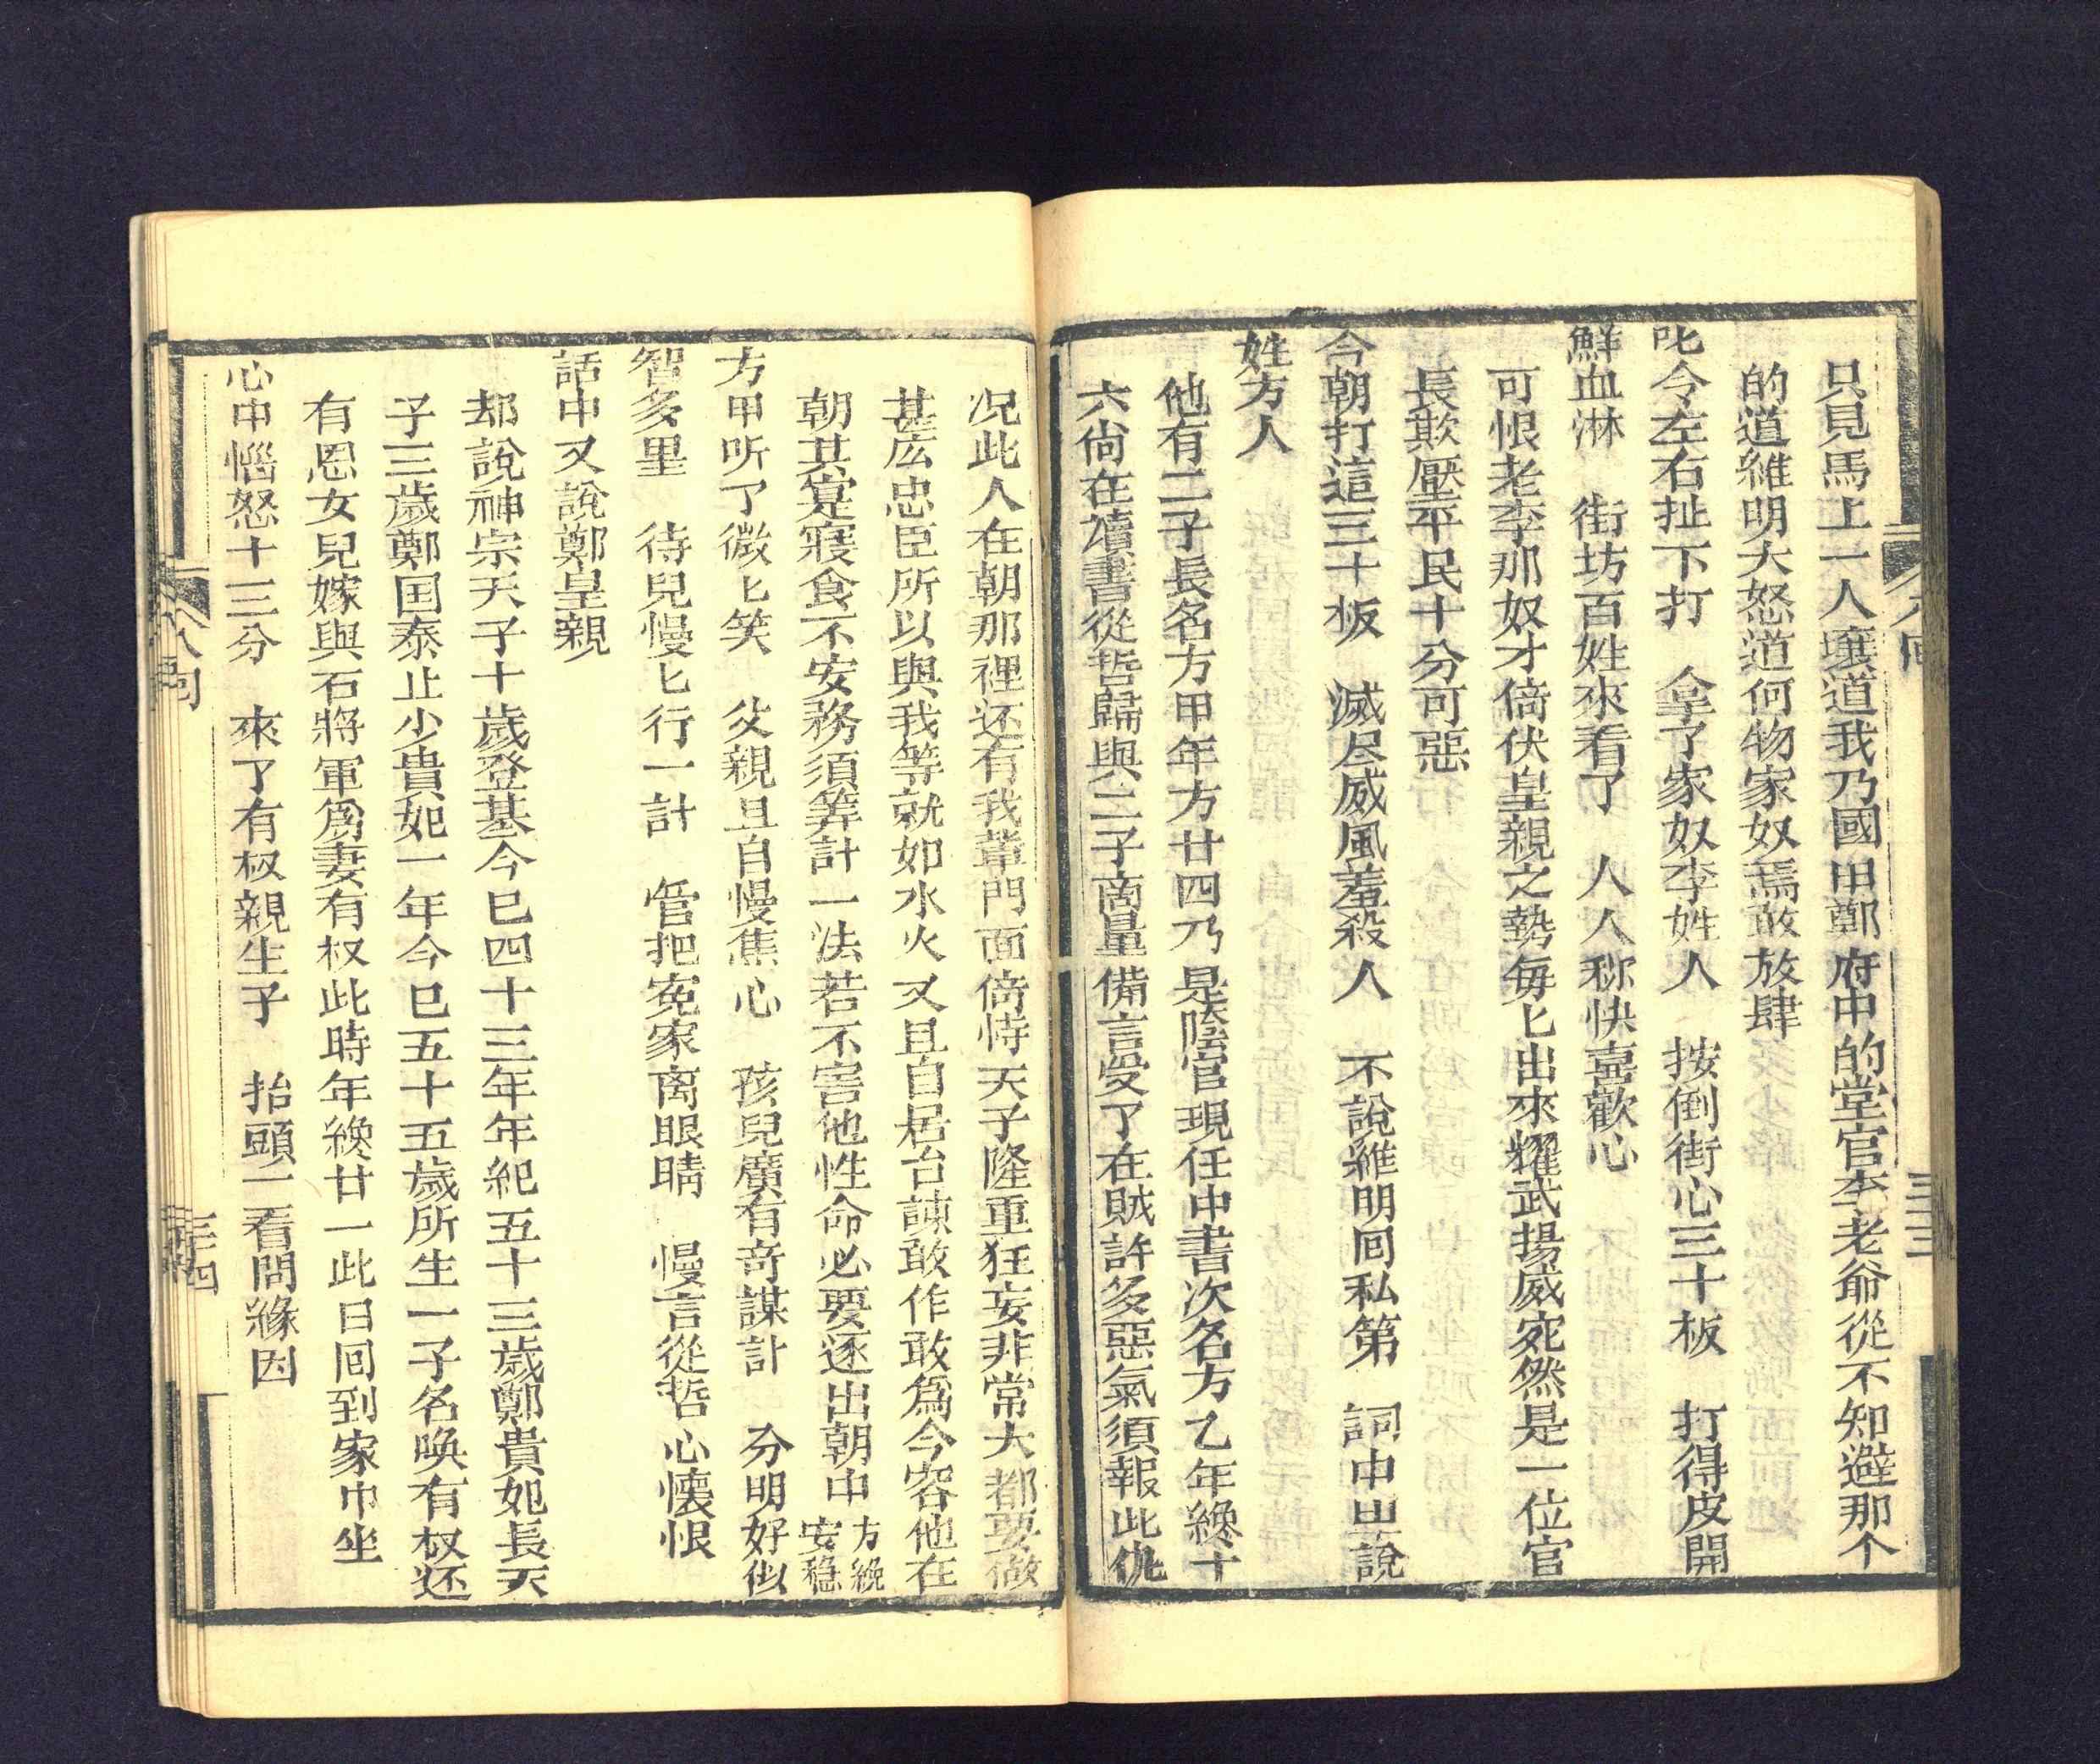 只見馬上一人壤道我乃國田鄭府中的堂官李老爺從不知避那个
的道維明大怒道何物家奴焉敢放肆
叱令左右扯下打　拿了家奴李姓人　按倒街心三十板　打得皮開
鮮血淋　街坊百姓來看了　人人称快喜歡心
可恨老李那奴才倚伏皇親之勢每匕出來耀武揚威宛然是一位官
長欺壓平民十分可惡
今朝打這三十板　滅尽威風羞殺人　不說維明囘私第　詞中出說
姓方人
他有二子長名方甲年方廿四乃是陰官現任中書次名方乙年纔十
六尙在讀書從哲歸與二子商量備言受了在賊許多惡氣須報此仇
况此人在朝那裡还有我輩門面倚恃天子隆重狂妄非常大都要做
甚広忠臣所以與我等就如水火又且自居台諫敢作敢爲今容他在
朝其寔寢食不安務須筭計一法若不害他性命必要逐出朝中方纔安穏
方甲听了微匕笑　父親且自慢焦心　孩兒廣有竒謀計　分明好似
智多星　待兒慢匕行一計　管把寃家离眼睛　慢言從哲心懷恨
話中又說鄭皇親
却說神宗天子十歲登基今已四十三年年紀五十三歲鄭貴妃長天
子三歲鄭国泰止少貴妃一年今已五十五歲所生一子名喚有权还
有恩女兒嫁與石將軍爲妻有权此時年纔廿一此日囘到家中坐
心中惱怒十三分　來了有权親生子　抬頭一看問緣因
八囘
三十四